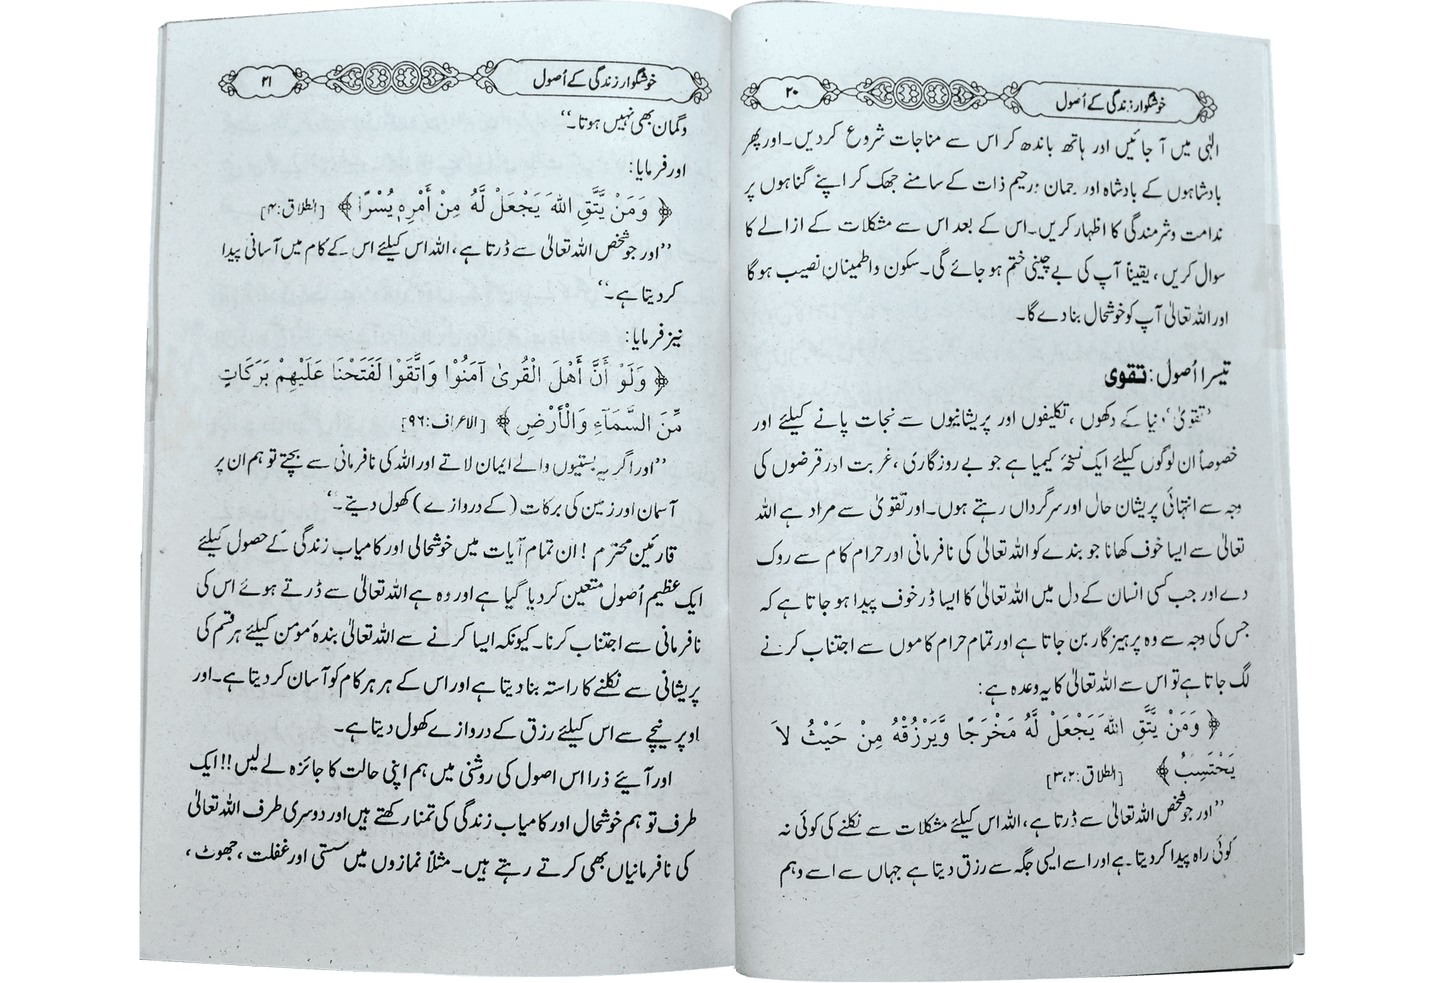 خوشگوار زندگی کے اُصول
۲۰
الٰہی میں آ جائیں اور ہاتھ باندھ کر اس سے مناجات شروع کردیں۔اور پھر
بادشاہوں کے بادشاہ اور رحمان ورحیم ذات کے سامنے جھک کر اپنے گناہوں پر
ندامت وشرمندگی کا اظہار کریں۔اس کے بعد اس سے مشکلات کے ازالے کا
سوال کریں ، یقیناً آپ کی بے چینی ختم ہو جائے گی۔سکون واطمینان نصیب ہو گا
اور اللہ تعالیٰ آپ کو خوشحال بنا دے گا۔
تیسرا اُصول : تقوی
’تقویٰ‘ دنیا کے دکھوں ، تکلیفوں اور پریشانیوں سے نجات پانے کیلئے اور
خصوصاً ان لوگوں کیلئے ایک نسخۂ کیمیا ہے جو بے روزگاری ، غربت اور قرضوں کی
وجہ سے انتہائی پریشان حال اور سرگرداں رہتے ہوں۔اور تقویٰ سے مراد ہے اللہ
تعالیٰ سے ایسا خوف کھانا جو بندے کو اللہ تعالیٰ کی نافرمانی اور حرام کام سے روک
دے اور جب کسی انسان کے دل میں اللہ تعالیٰ کا ایسا ڈر خوف پیدا ہو جاتا ہے کہ
جس کی وجہ سے وہ پرہیزگار بن جاتا ہے اور تمام حرام کاموں سے اجتناب کرنے
لگ جاتا ہے تو اس سے اللہ تعالیٰ کا یہ وعدہ ہے :
﴿ وَمَنْ يَّتَّقِ اللّٰهَ يَجْعَلْ لَّهُ مَخْرَجًا وَّيَرْزُقْهُ مِنْ حَيْثُ لاَ
يَحْتَسِبُ ﴾ [الطلاق:۳،۲]
’’اور جو شخص اللہ تعالیٰ سے ڈرتا ہے، اللہ اس کیلئے مشکلات سے نکلنے کی کوئی نہ
کوئی راہ پیدا کردیتا ہے اور اسے ایسی جگہ سے رزق دیتا ہے جہاں سے اسے وہم
خوشگوار زندگی کے اُصول
۲۱
وگمان بھی نہیں ہوتا۔‘‘
اور فرمایا :
﴿ وَمَنْ يَّتَّقِ اللّٰهَ يَجْعَلْ لَّهُ مِنْ أَمْرِهٖ يُسْرًا ﴾ [الطلاق:۴]
’’اور جو شخص اللہ تعالیٰ سے ڈرتا ہے، اللہ اس کیلئے اس کے کام میں آسانی پیدا
کردیتا ہے۔‘‘
نیز فرمایا :
﴿ وَلَوْ أَنَّ أَهْلَ الْقُرىٰ آمَنُوْا وَاتَّقَوْا لَفَتَحْنَا عَلَيْهِمْ بَرَكَاتٍ
مِّنَ السَّمَآءِ وَالْأَرْضِ ﴾ [الاعراف:۹۶]
’’اور اگر یہ بستیوں والے ایمان لاتے اور اللہ کی نافرمانی سے بچتے تو ہم ان پر
آسمان اور زمین کی برکات (کے دروازے) کھول دیتے۔‘‘
قارئین محترم ! ان تمام آیات میں خوشحالی اور کامیاب زندگی کے حصول کیلئے
ایک عظیم اُصول متعین کردیا گیا ہے اور وہ ہے اللہ تعالیٰ سے ڈرتے ہوئے اس کی
نافرمانی سے اجتناب کرنا۔کیونکہ ایسا کرنے سے اللہ تعالیٰ بندۂ مومن کیلئے ہر قسم کی
پریشانی سے نکلنے کا راستہ بنا دیتا ہے اور اس کے ہر ہر کام کو آسان کردیتا ہے۔اور
اوپر نیچے سے اس کیلئے رزق کے دروازے کھول دیتا ہے۔
اور آیئے ذرا اس اصول کی روشنی میں ہم اپنی حالت کا جائزہ لے لیں!! ایک
طرف تو ہم خوشحال اور کامیاب زندگی کی تمنا رکھتے ہیں اور دوسری طرف اللہ تعالیٰ
کی نافرمانیاں بھی کرتے رہتے ہیں۔مثلاً نمازوں میں سستی اور غفلت ، جھوٹ ،